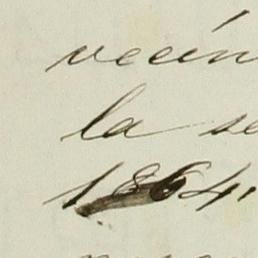 vecin
la se
1864,